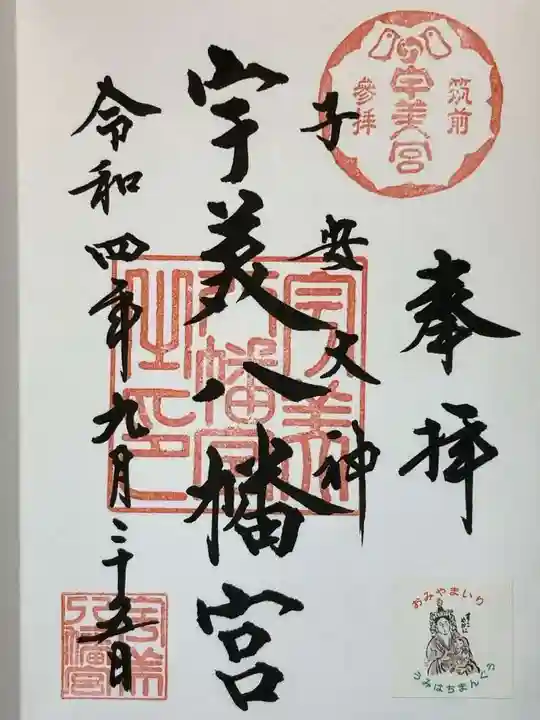 奉拝
筑前
宇美宮
參拝
子安大神
宇美八幡宮
宇美
八幡宮
之印
令和四年九月二十五日
宇美
八幡宮
おみやまいり
うみはちまんぐう